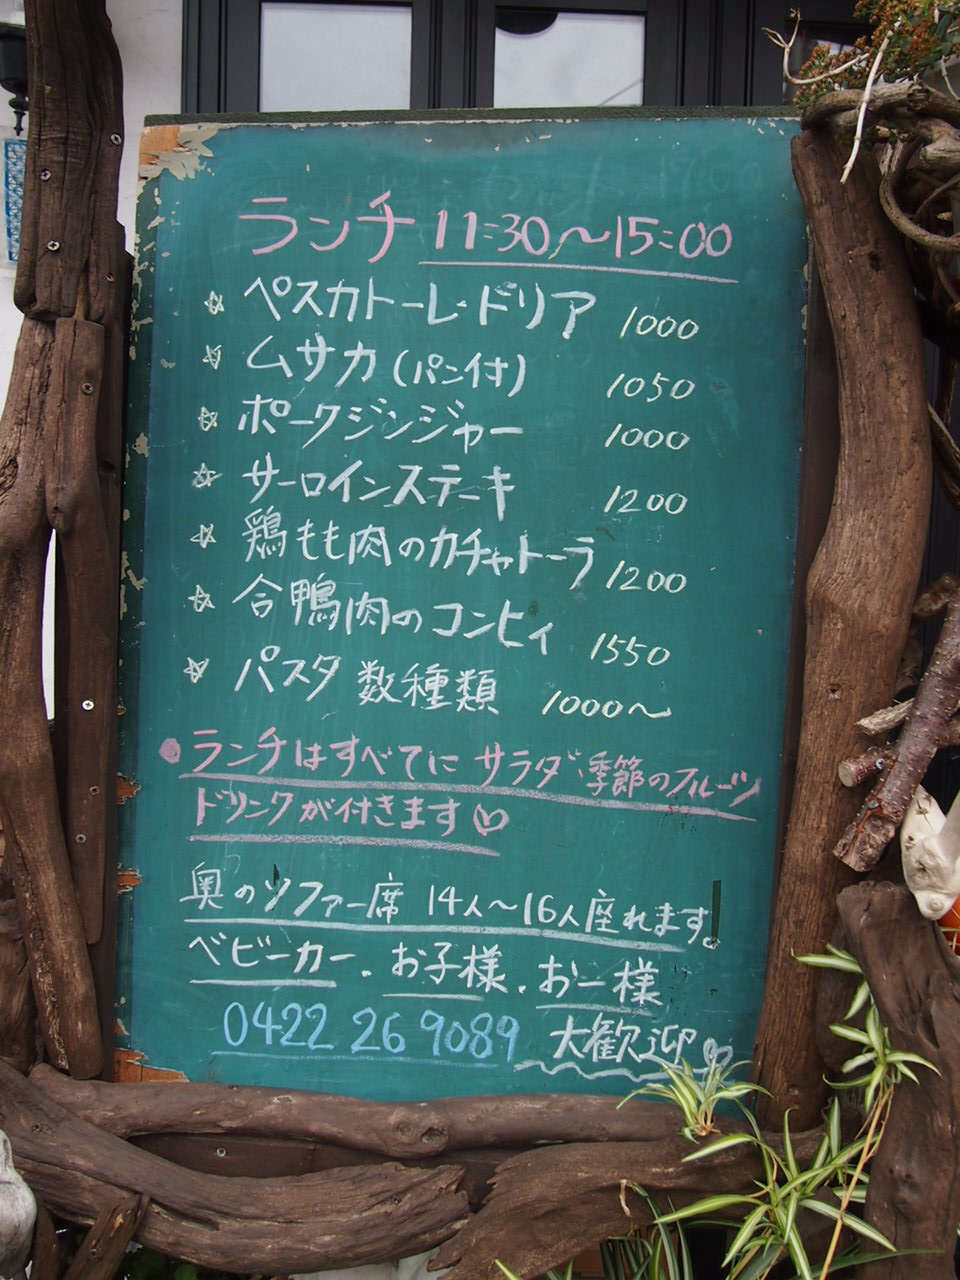 ランチ 11:30～15:00
☆ ペスカトーレ・ドリア 1000
☆ ムサカ(パン付) 1050
☆ ポークジンジャー 1000
☆ サーロインステーキ 1200
☆ 鶏もも肉のカチャトーラ 1200
☆ 合鴨肉のコンヒィ 1550
☆ パスタ 数種類 1000～
●ランチはすべてに サラダ・季節のフルーツ
ドリンクが付きます♡
奥のソファー席 14人～16人座れます!
ベビーカー、お子様、お一様
0422 26 9089 大歓迎♡